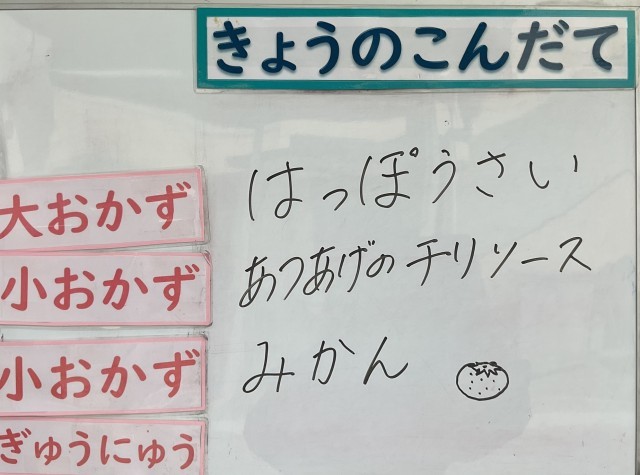 きょうのこんだて
大おかず はっぽうさい
小おかず あつあげのチリソース
小おかず みかん
ぎゅうにゅう